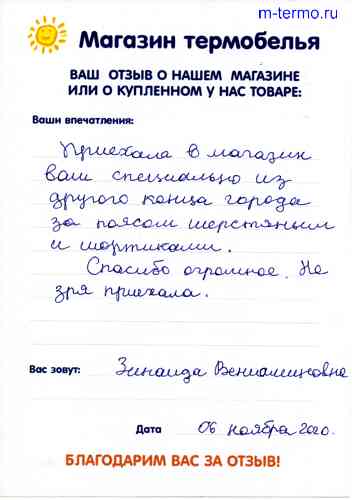 m-termo.ru
Магазин термобелья
ВАШ ОТЗЫВ О НАШЕМ МАГАЗИНЕ
ИЛИ О КУПЛЕННОМ У НАС ТОВАРЕ:
Ваши впечатления:
Приехала в магазин
ваш специально из
другого конца города
за поясом шерстяным
и шортиками.
Спасибо огромное. Не
зря приехала.
Вас зовут: Зинаида Вениаминовна
Дата 06 ноября 2020.
БЛАГОДАРИМ ВАС ЗА ОТЗЫВ!